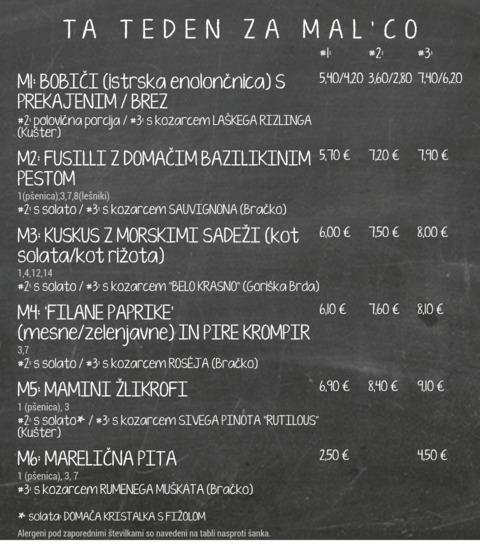 TA TEDEN ZA MAL'CO
#1: #2: #3:
M1: BOBIČI (istrska enolončnica) S 5,40/4,20 3,60/2,80 7,40/6,20
PREKAJENIM / BREZ
#2: polovična porcija / #3: s kozarcem LAŠKEGA RIZLINGA
(Kušter)
M2: FUSILLI Z DOMAČIM BAZILIKINIM 5,70 € 7,20 € 7,90 €
PESTOM
1(pšenica),3,7,8(lešniki)
#2: s solato / #3: s kozarcem SAUVIGNONA (Bračko)
M3: KUSKUS Z MORSKIMI SADEŽI (kot 6,00 € 7,50 € 8,00 €
solata/kot rižota)
1,4,12,14
#2: s solato / #3: s kozarcem "BELO KRASNO" (Goriška Brda)
M4: 'FILANE PAPRIKE' 6,10 € 7,60 € 8,10 €
(mesne/zelenjavne) IN PIRE KROMPIR
3,7
#2: s solato / #3: s kozarcem ROSÉJA (Bračko)
M5: MAMINI ŽLIKROFI 6,90 € 8,40 € 9,10 €
1 (pšenica), 3
#2: s solato* / #3: s kozarcem SIVEGA PINOTA "RUTILOUS"
(Kušter)
M6: MARELIČNA PITA 2,50 € 4,50 €
1 (pšenica), 3, 7
#3: s kozarcem RUMENEGA MUŠKATA (Bračko)
* solata: DOMAČA KRISTALKA S FIŽOLOM
Alergeni pod zaporednimi številkami so navedeni na tabli nasproti šanka.